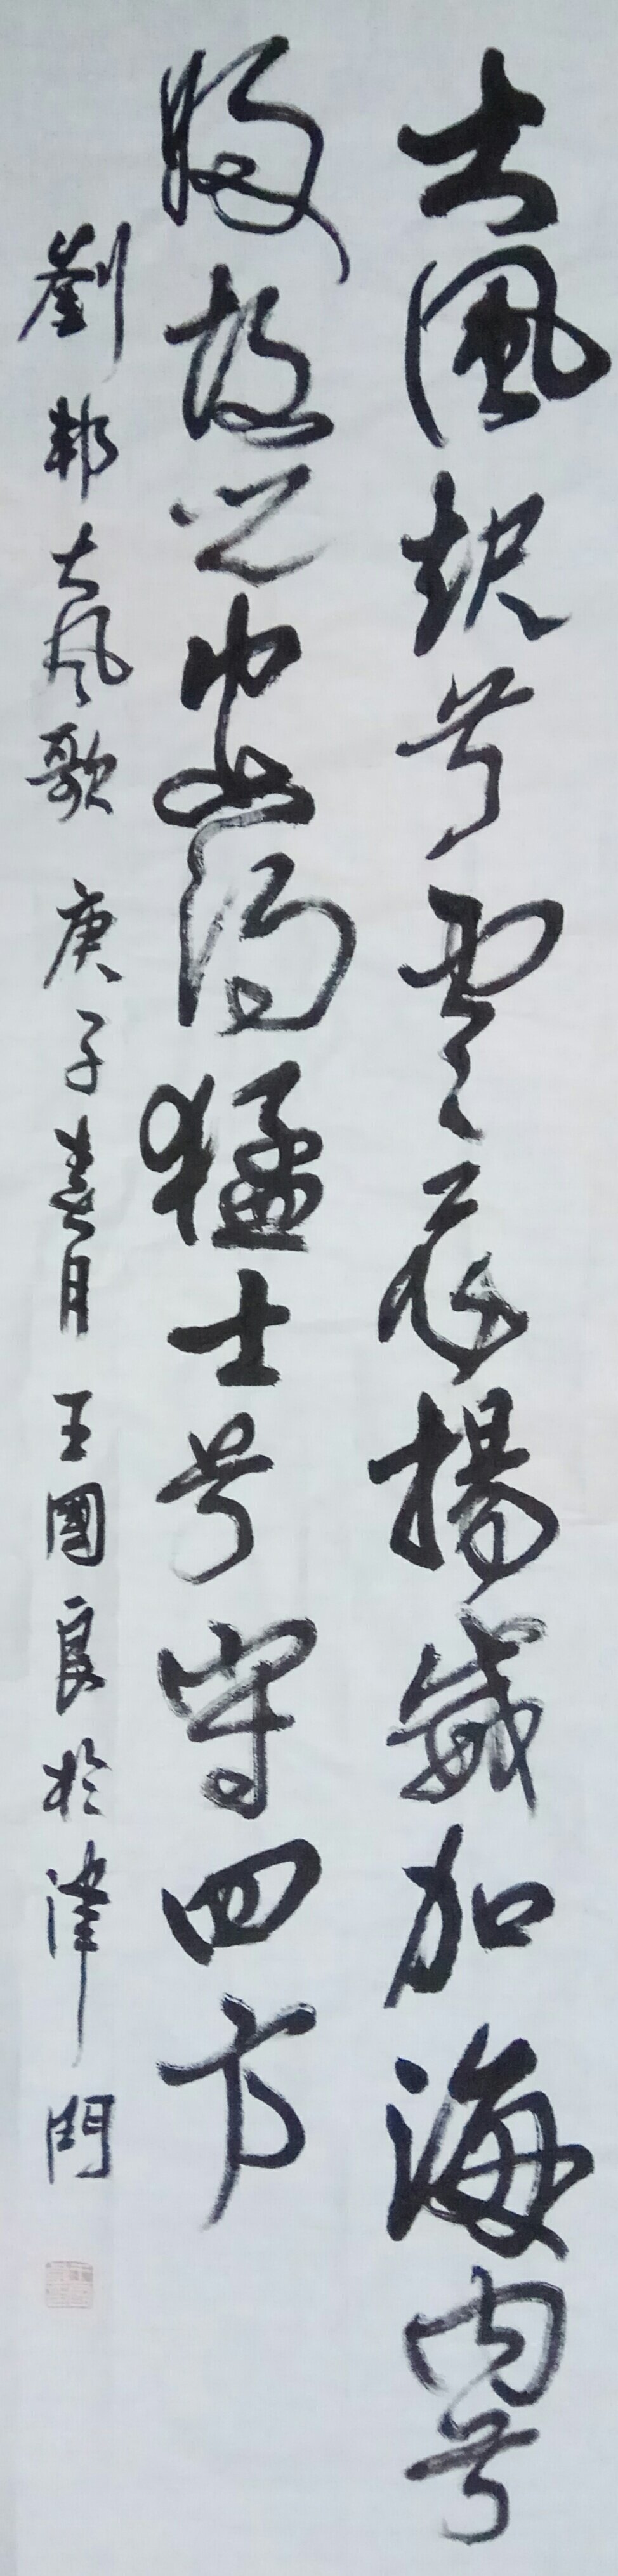 大風起兮雲飛揚威加海内兮
歸故鄉安得猛士兮守四方
劉邦大风歌 庚子春月 王國良於津門